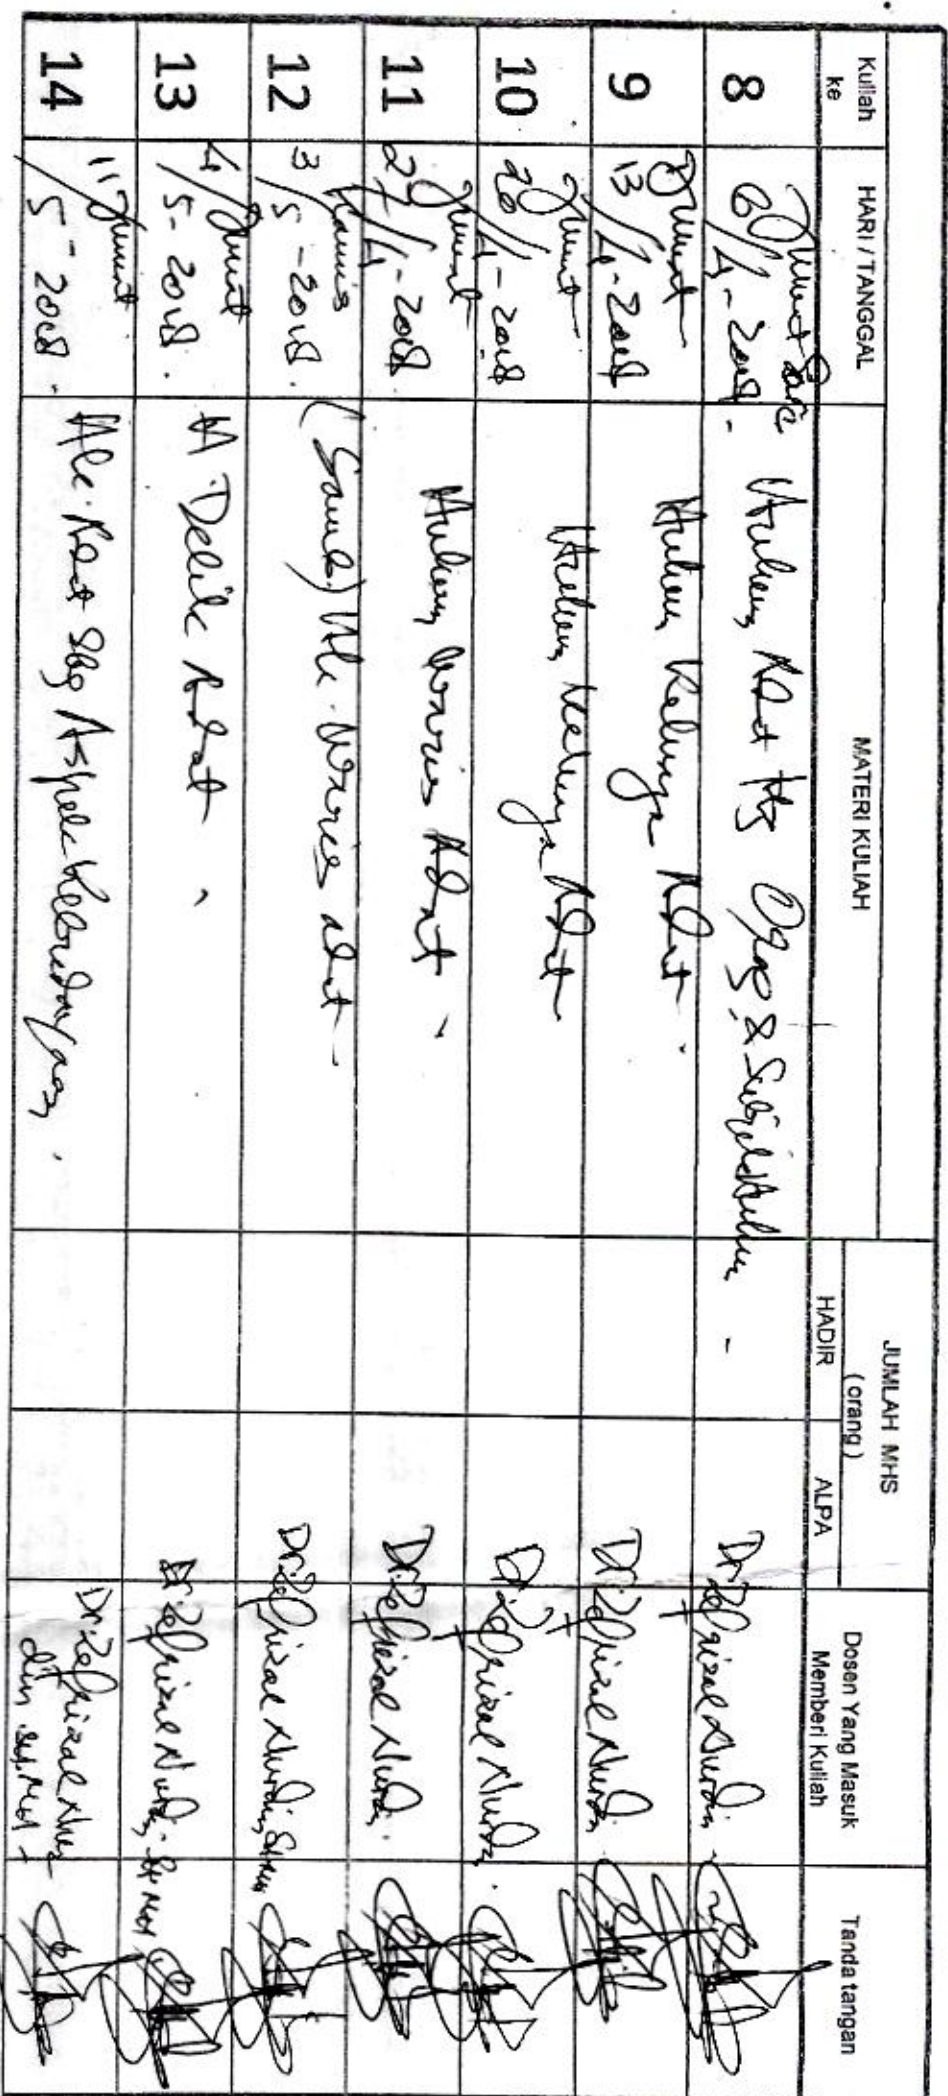 Kuliah ke HARI / TANGGAL MATERI KULIAH JUMLAH MHS (orang) Dosen Yang Masuk Memberi Kuliah Tanda tangan
HADIR ALPA
8 Jumat
6/4-2018. Hukum Adat ttg Orag & Subjek Hukum - Dr. Zefrizal Nurdin
9 Jumat
13/4-2018 Hukum Keluarga Adat. Dr. Zefrizal Nurdin
10 Jumat
20/4-2018 Hukum Keluarga Adat Dr. Zefrizal Nurdin.
11 Jumat
27/4-2018. Hukum Waris Adat - Dr. Zefrizal Nurdin.
12 Kamis
3/5-2018. Hk. Waris adat - Dr. Zefrizal Nurdin, SH MH
13 Jumat
4/5-2018. H. Delik Adat - Dr. Zefrizal Nurdin, SH MH
14 Jumat
11/5-2018. Hk. Adat Sbg Aspek Kebudayaan. Dr. Zefrizal Nur-
din SH. MH -